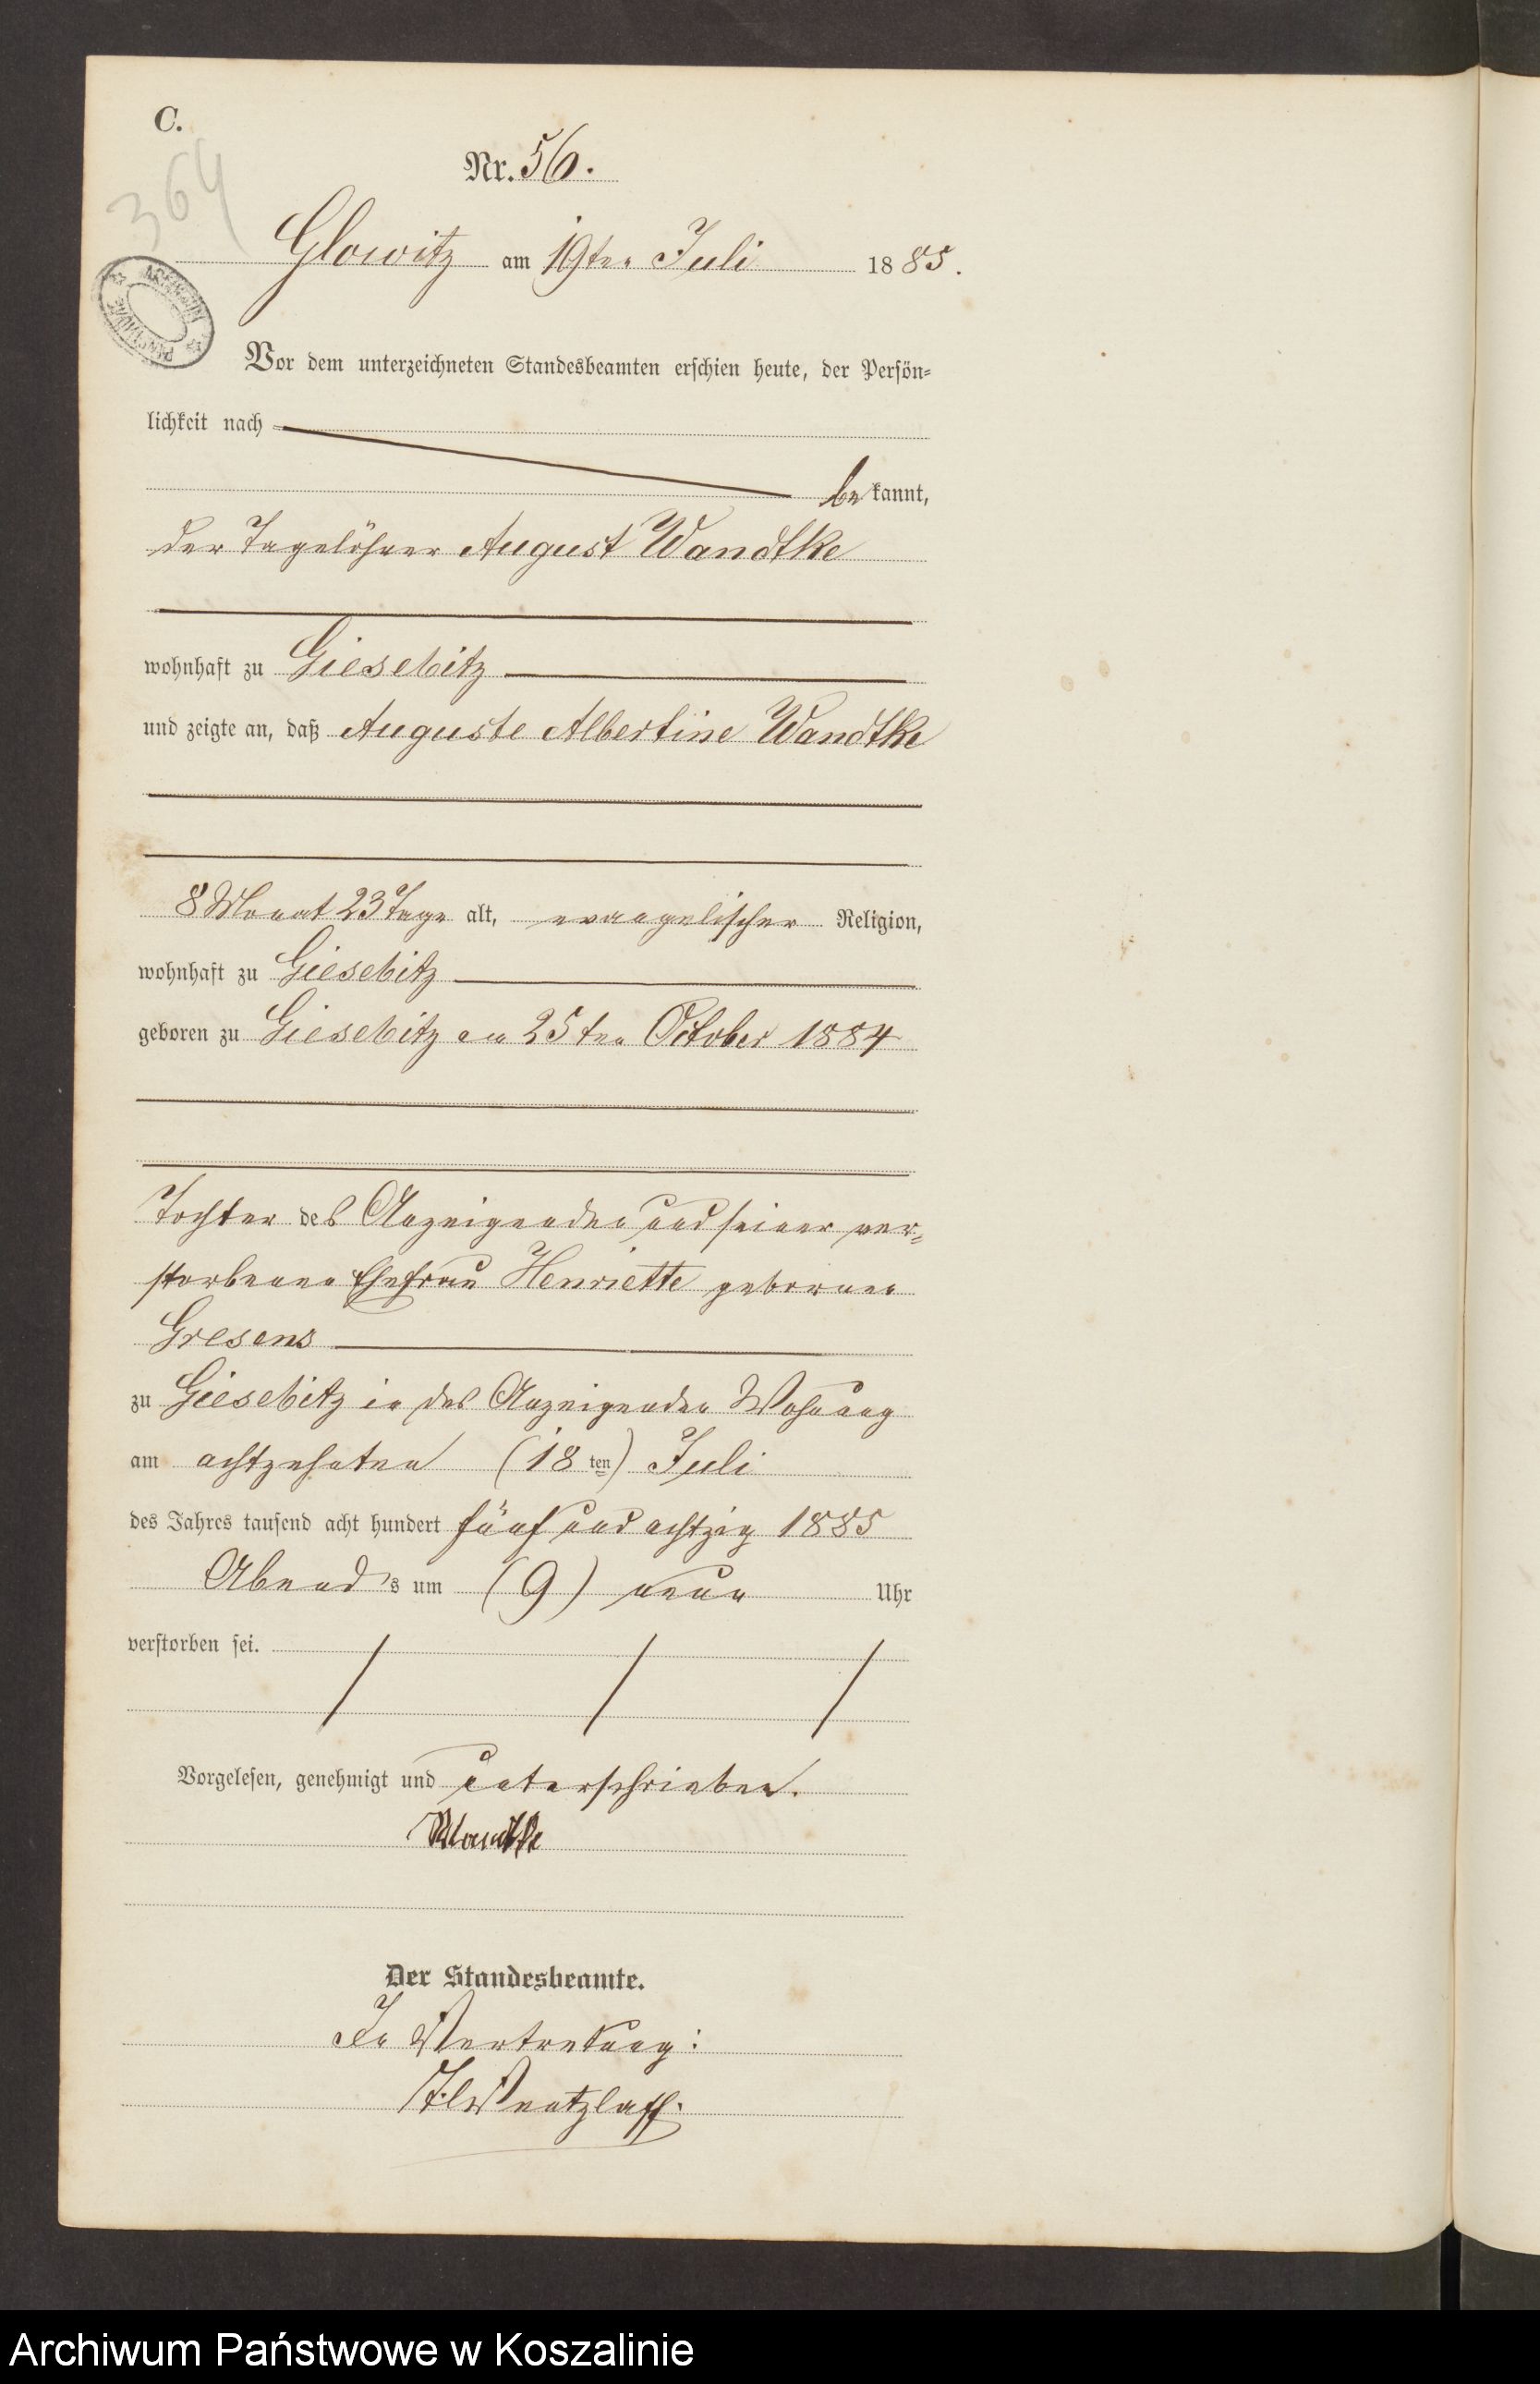 C.
Nr. 56.
364
Glowitz am 19ten Juli 1885.
ARCHIWUM PAŃSTWOWE
Vor dem unterzeichneten Standesbeamten erschien heute, der Persön-
lichkeit nach
bekannt,
der Tagelöhner August Wandtke
wohnhaft zu Giesebitz
und zeigte an, daß Auguste Albertine Wandtke
8 Monat 23 Tage alt, evangelischer Religion,
wohnhaft zu Giesebitz
geboren zu Giesebitz am 25ten October 1884
Tochter des Anzeigenden und seiner ver-
storbenen Ehefrau Henriette geborenen
Gresens
zu Giesebitz in des Anzeigenden Wohnung
am achtzehnten (18ten) Juli
des Jahres tausend acht hundert fünf und achtzig 1885
Abends um (9) neun Uhr
verstorben sei.
Vorgelesen, genehmigt und unterschrieben.
Wandtke
Der Standesbeamte.
In Vertretung:
Wentzlaff.
Archiwum Państwowe w Koszalinie